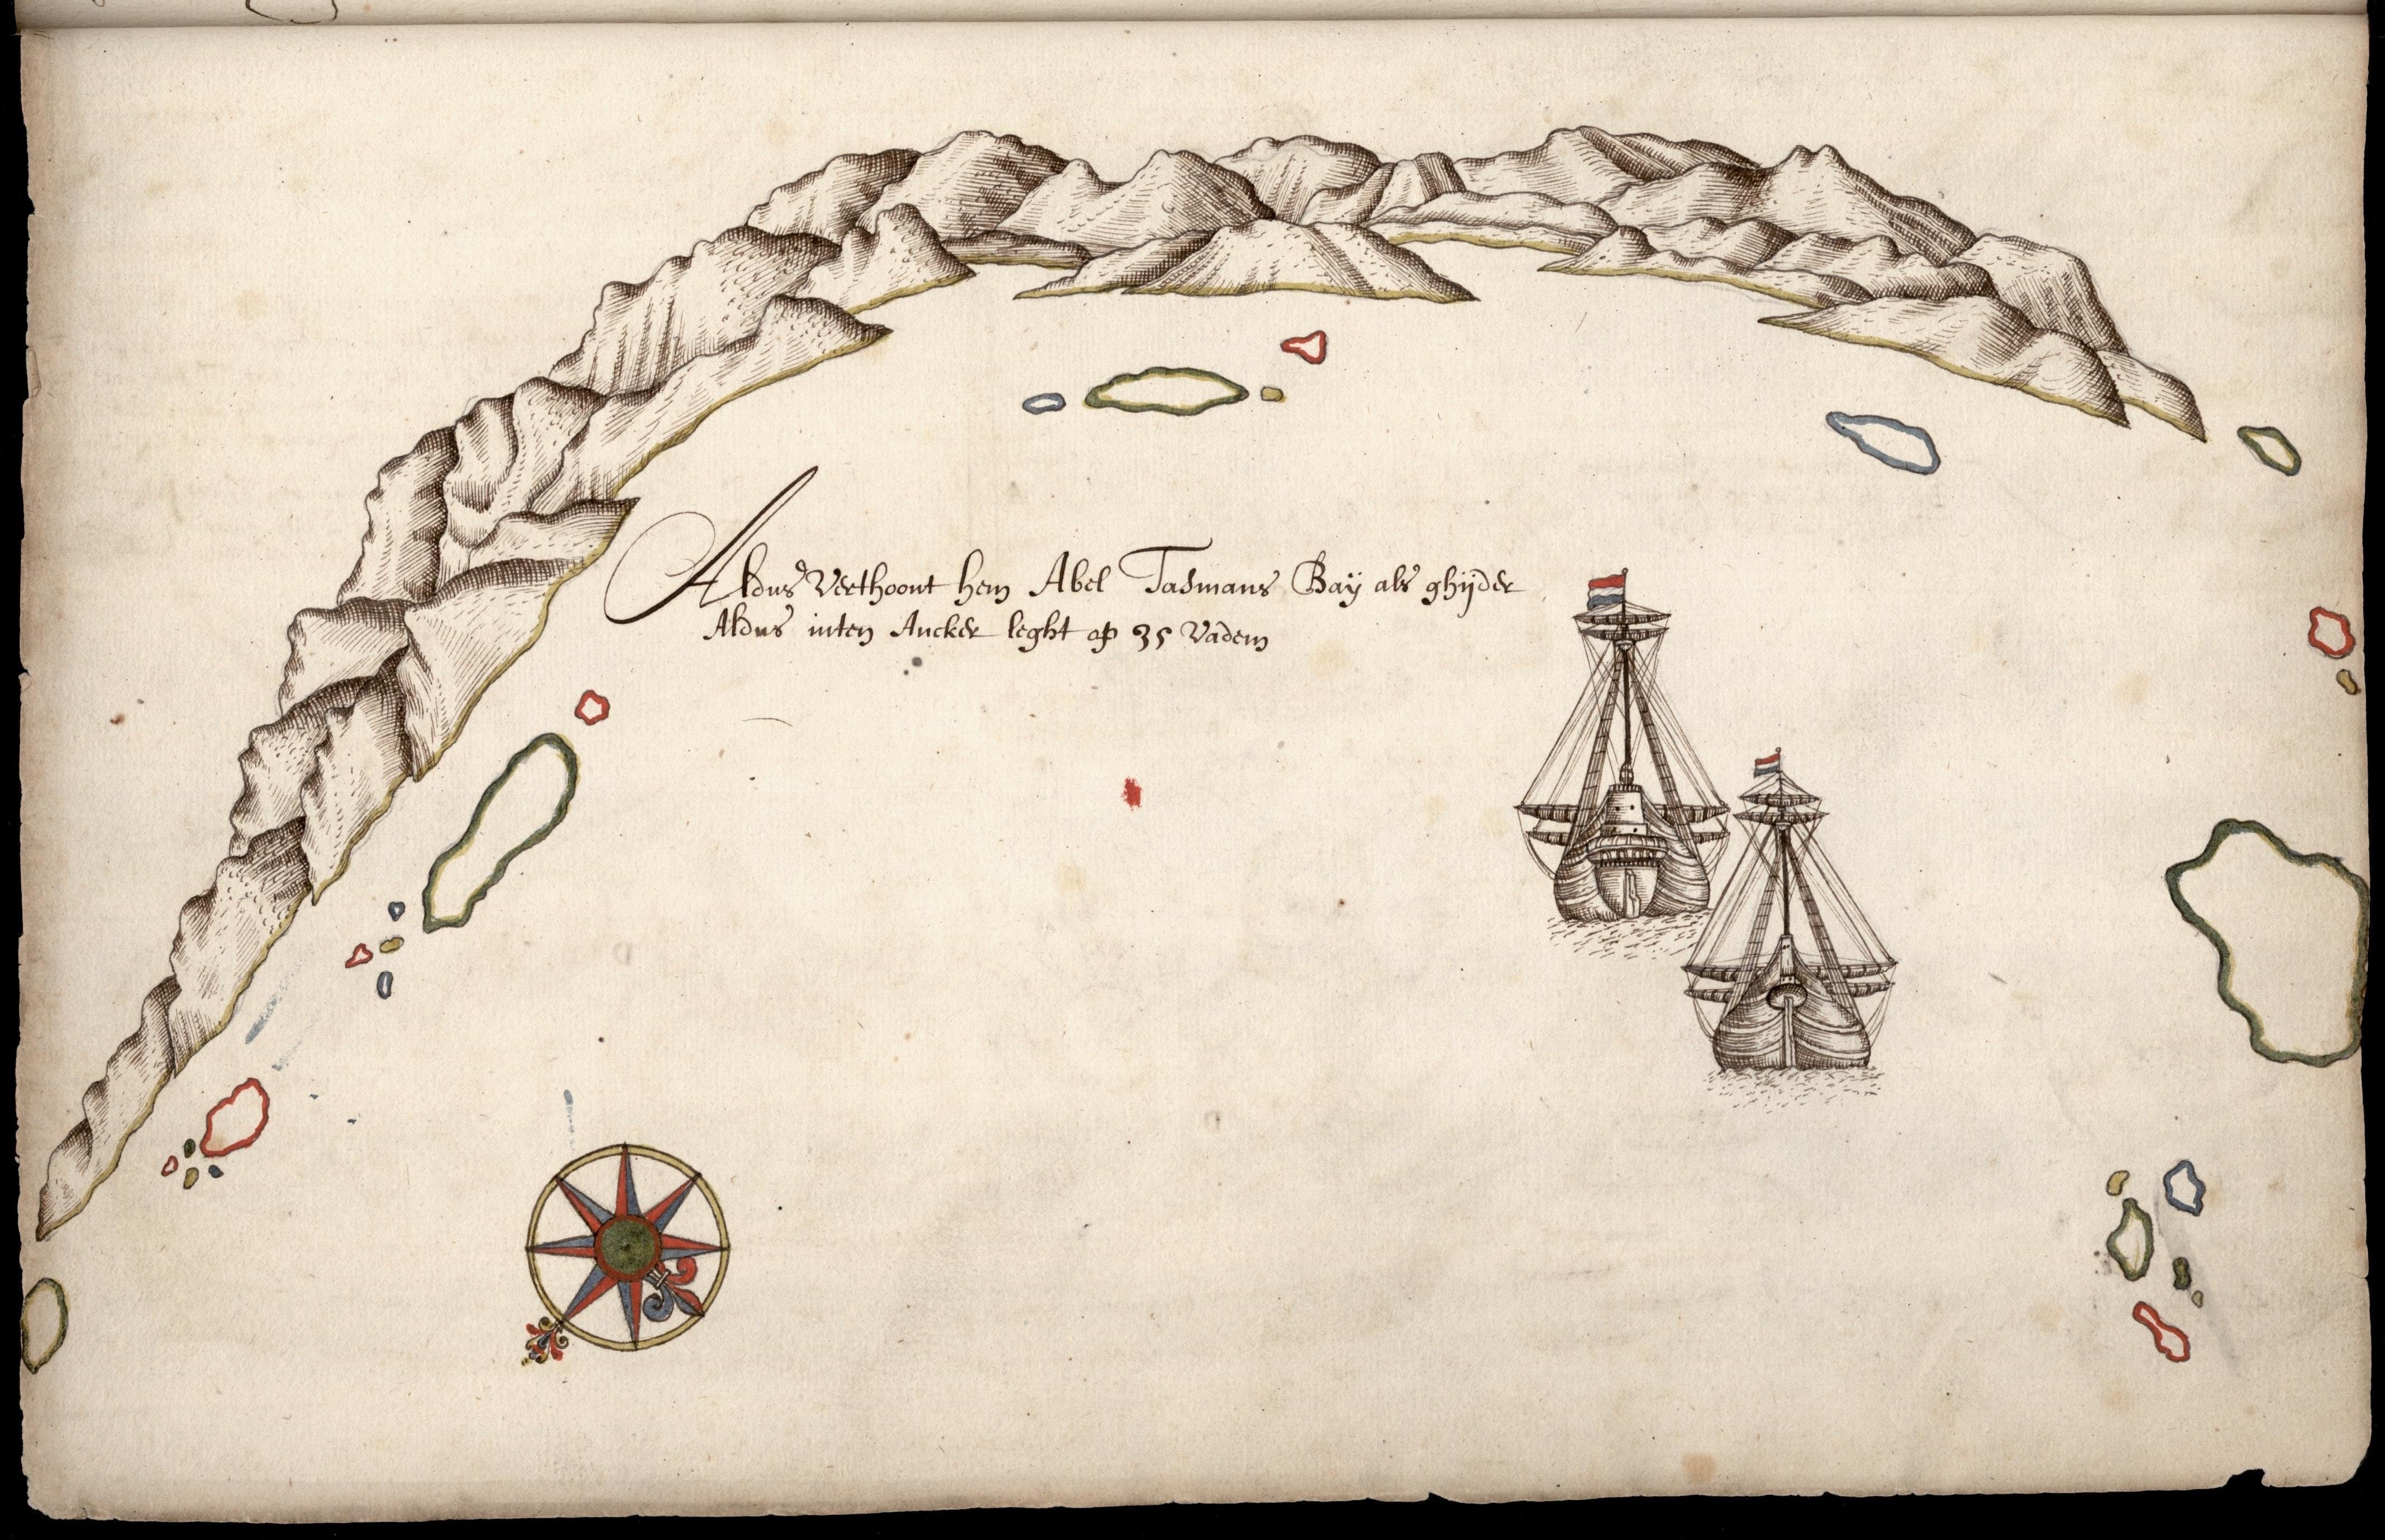 Aldus Verthoont hem Abel Tasmans Baÿ als ghijder
Aldus inten Ancker leght op 35 Vadem